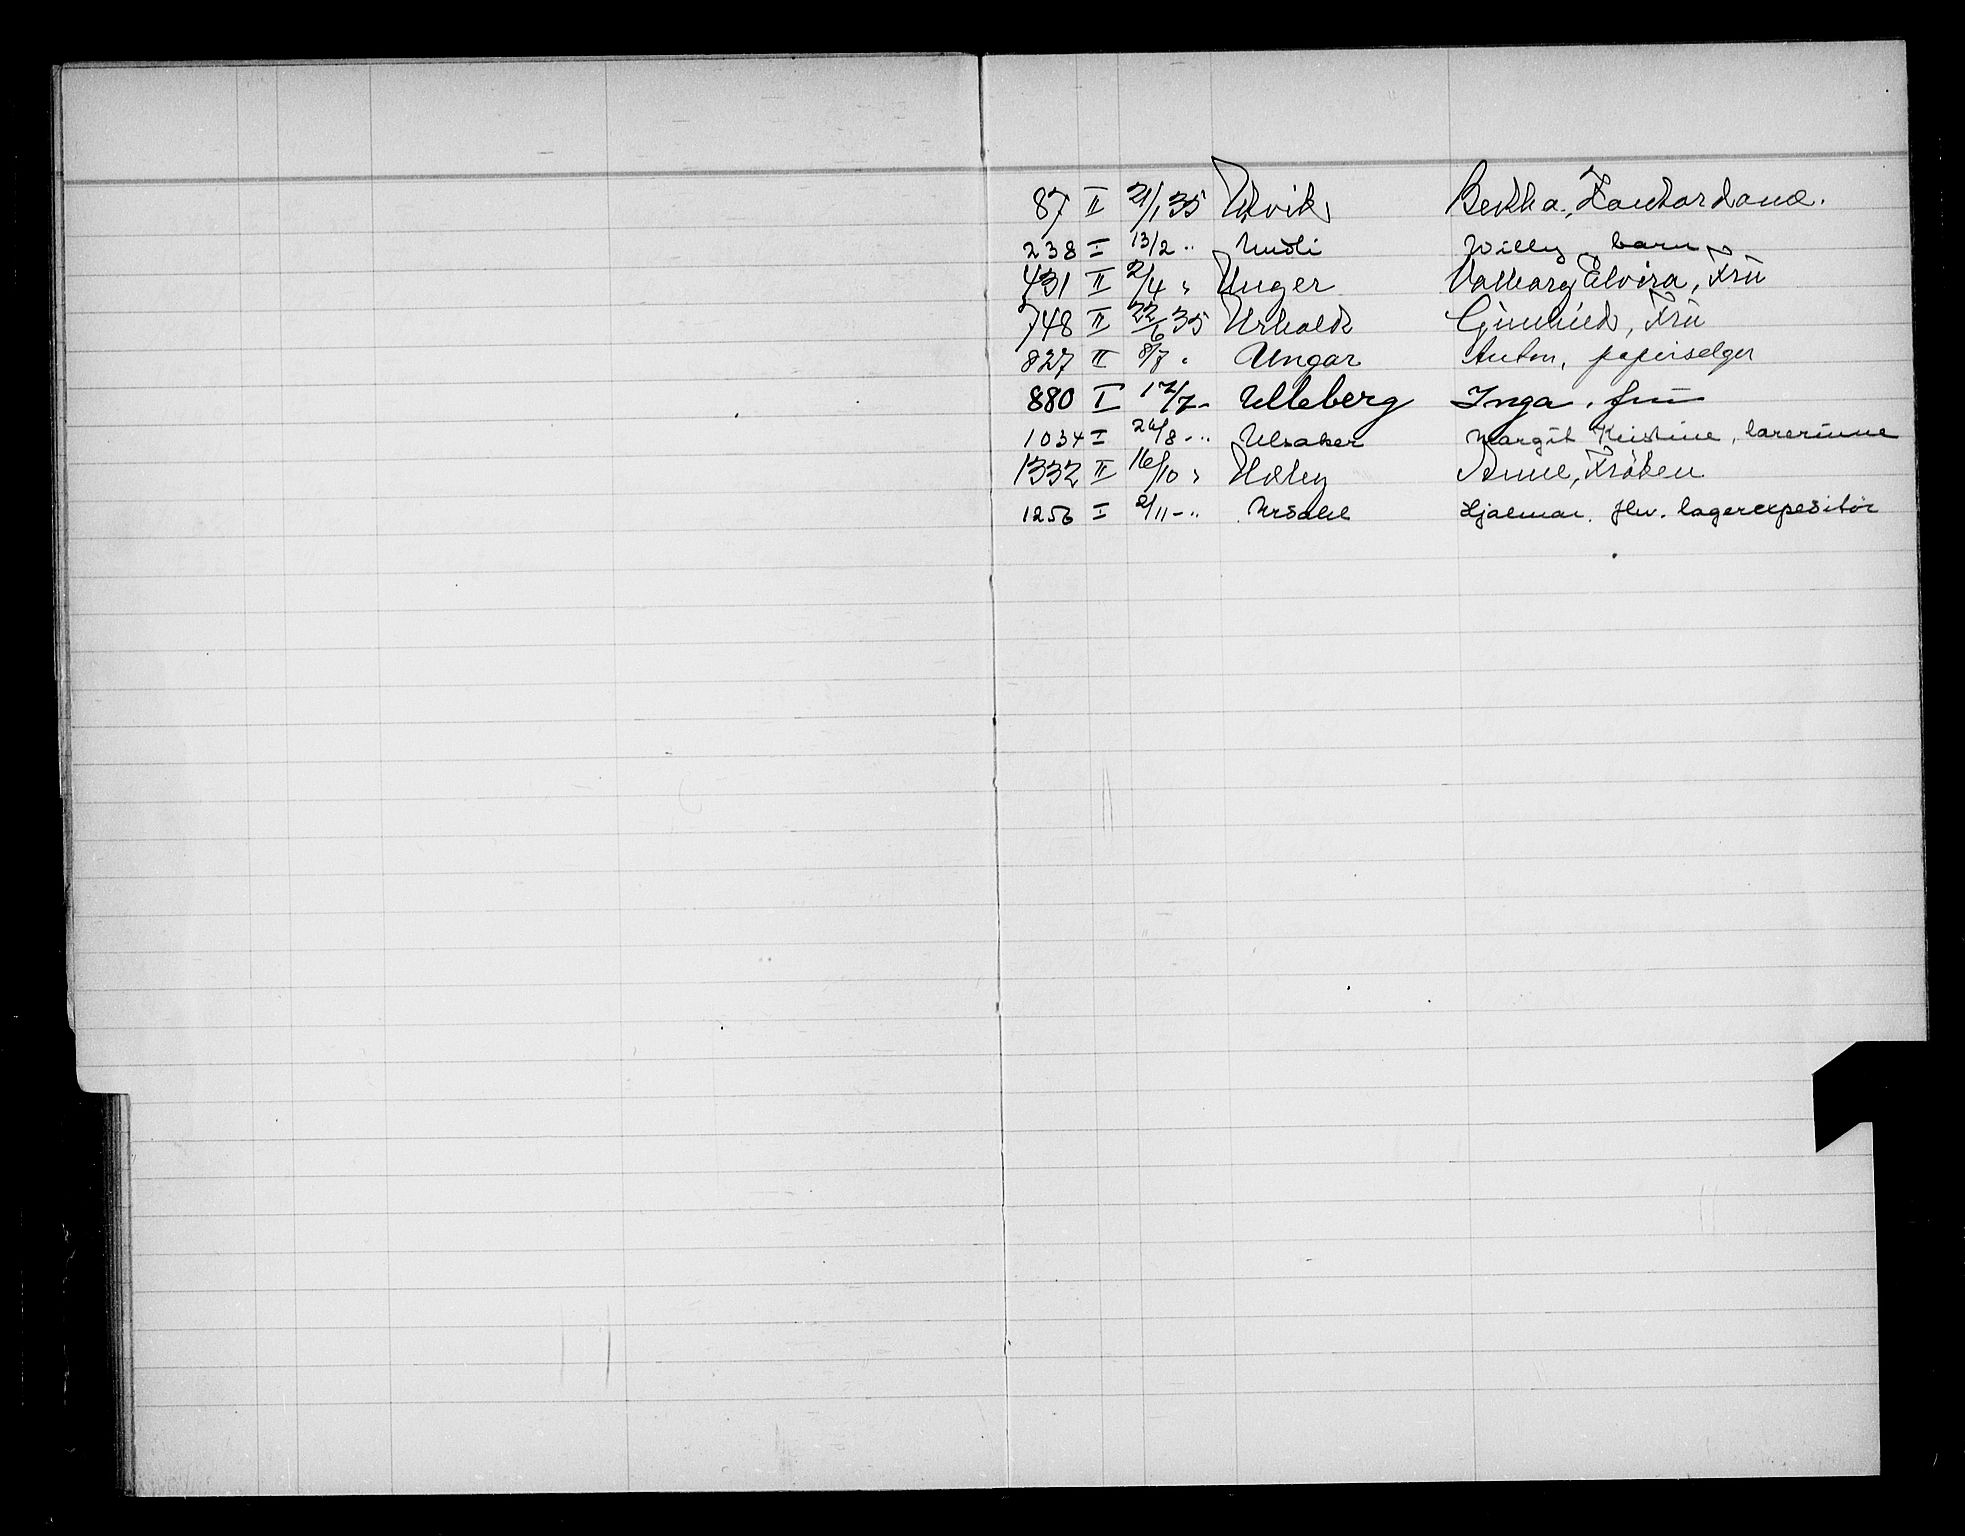 87 II 21/1 35 Utvik Bertha, Kontordame.
238 I 13/2 " Undli Willy, barn
431 II 2/4 " Unger Valborg Elvira, Fru
748 II 22/6 35 Urholdt Fru
827 II 8/7 " Ungar Anton, papirselger
880 I 17/7 - Ulleberg Inga, fru
1034 I 26/8 - " Ulsaker Margit Kristine, lærerinne
1332 II 16/10 " Anne, Frøken
1256 I 2/11 - " Ursdal Hjalmar. fhv. lagerexpeditør